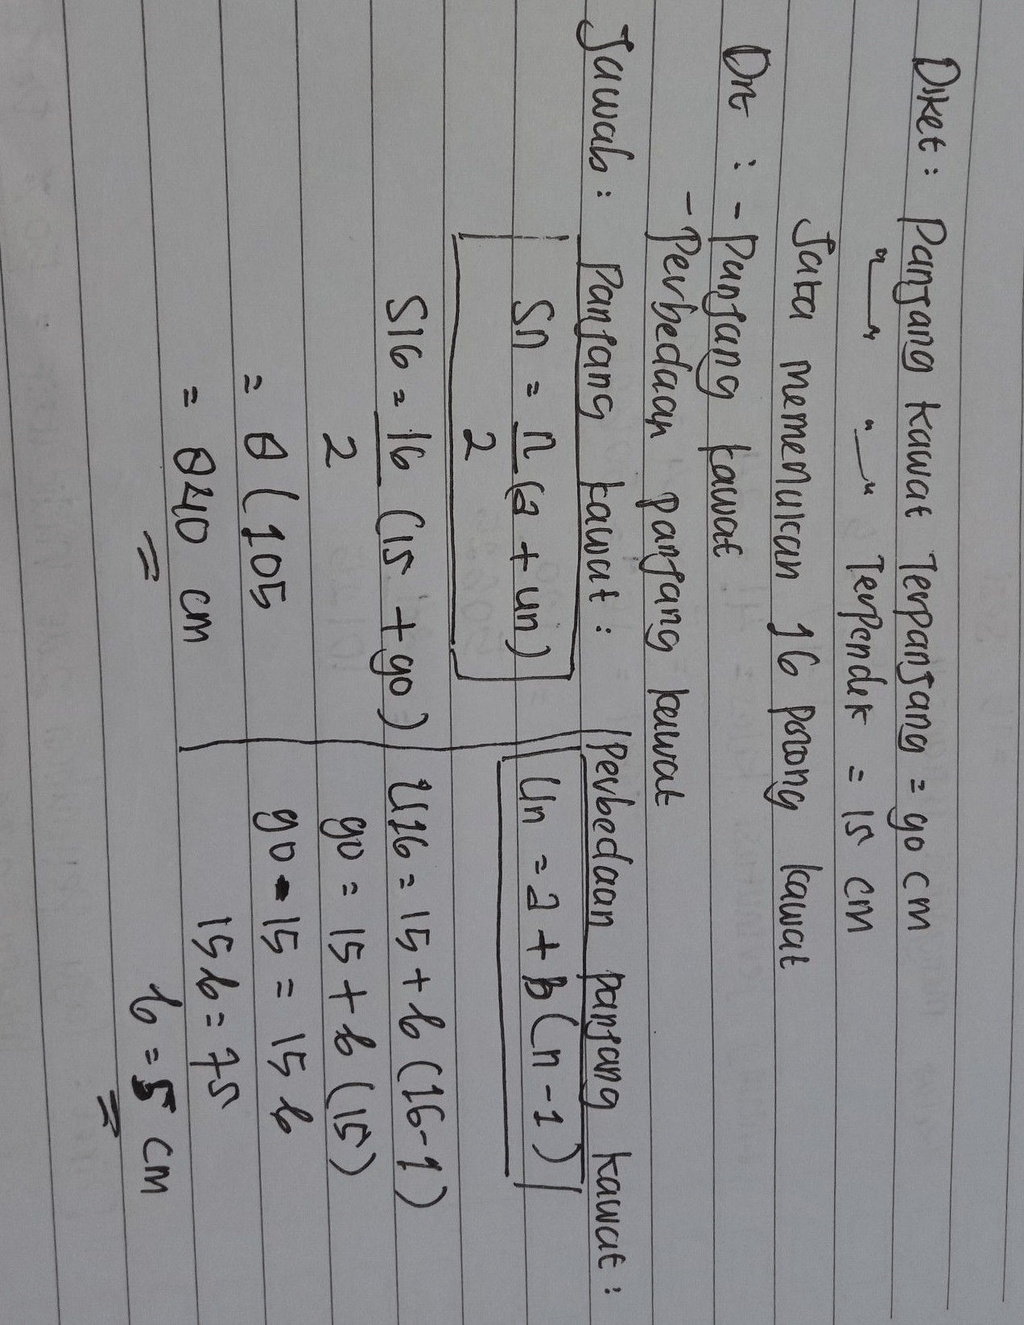 Diket : Panjang kawat Terpanjang = 90 cm
"—" "—" Terpendek = 15 cm
Jaka menemukan 16 potong kawat
Dit : - Panjang kawat
- Perbedaan panjang kawat
Jawab : Panjang kawat :
Sn = n/2 (a + un)
S16 = 16/2 (15 + 90)
= 8 (105
= 840 cm
Perbedaan panjang kawat :
Un = a + b (n - 1)
U16 = 15 + b (16-1)
90 = 15 + b (15)
90 - 15 = 15 b
15b = 75
b = 5 cm